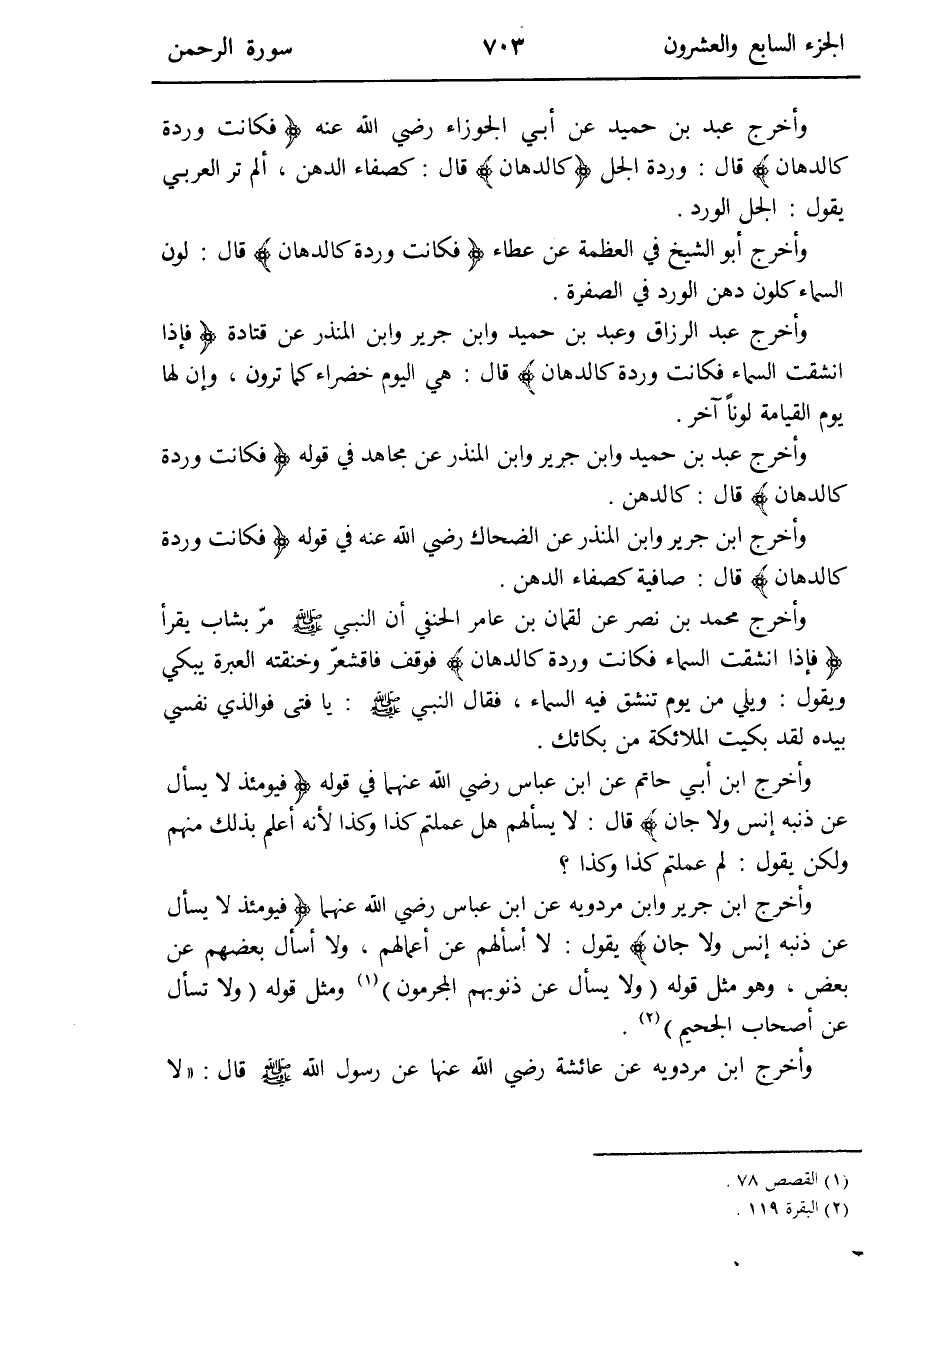 الجزء السابع والعشرون ٧٠٣ سورة الرحمن
وأخرج عبد بن حميد عن أبي الجوزاء رضي الله عنه ﴿ فكانت وردة
كالدهان ﴾ قال : وردة الجل ﴿ كالدهان ﴾ قال : كصفاء الدهن ، ألم تر العربي
يقول : الجل الورد .
وأخرج أبو الشيخ في العظمة عن عطاء ﴿ فكانت وردة كالدهان ﴾ قال : لون
السماء كلون دهن الورد في الصفرة .
وأخرج عبد الرزاق وعبد بن حميد وابن جرير وابن المنذر عن قتادة ﴿ فإذا
انشقت السماء فكانت وردة كالدهان ﴾ قال : هي اليوم خضراء كما ترون ، وإن لها
يوم القيامة لوناً آخر .
وأخرج عبد بن حميد وابن جرير وابن المنذر عن مجاهد في قوله ﴿ فكانت وردة
كالدهان ﴾ قال : كالدهن .
وأخرج ابن جرير وابن المنذر عن الضحاك رضي الله عنه في قوله ﴿ فكانت وردة
كالدهان ﴾ قال : صافية كصفاء الدهن .
وأخرج محمد بن نصر عن لقمان بن عامر الحنفي أن النبي ﷺ مرّ بشاب يقرأ
﴿ فإذا انشقت السماء فكانت وردة كالدهان ﴾ فوقف فاقشعرّ وخنقته العبرة يبكي
ويقول : ويلي من يوم تنشق فيه السماء ، فقال النبي ﷺ : يا فتى فوالذي نفسي
بيده لقد بكيت الملائكة من بكائك .
وأخرج ابن أبي حاتم عن ابن عباس رضي الله عنهما في قوله ﴿ فيومئذ لا يسأل
عن ذنبه إنس ولا جان ﴾ قال : لا يسألهم هل عملتم كذا وكذا لأنه أعلم بذلك منهم
ولكن يقول : لم عملتم كذا وكذا ؟
وأخرج ابن جرير وابن مردويه عن ابن عباس رضي الله عنهما ﴿ فيومئذ لا يسأل
عن ذنبه إنس ولا جان ﴾ يقول : لا أسألهم عن أعمالهم ، ولا أسأل بعضهم عن
بعض ، وهو مثل قوله ( ولا يسأل عن ذنوبهم المجرمون )(١) ومثل قوله ( ولا تسأل
عن أصحاب الجحيم )(٢) .
وأخرج ابن مردويه عن عائشة رضي الله عنها عن رسول الله ﷺ قال : « لا
(١) القصص ٧٨ .
(٢) البقرة ١١٩ .